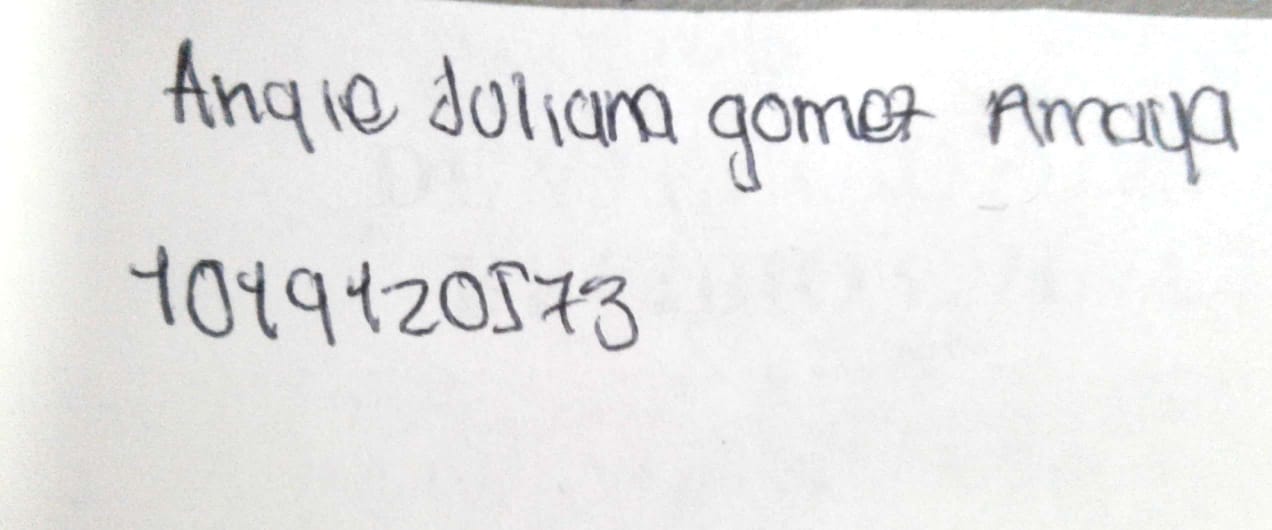 Angie Juliana gomez Amaya
1019120573